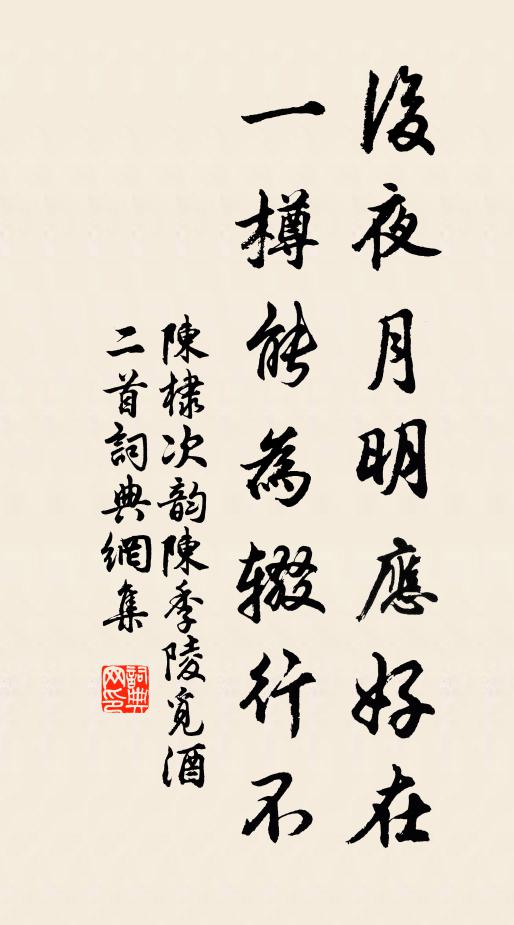 後夜月明應好在
一樽能為辍行不
陳棣次韵陳季陵覓酒
二首詞典網集
詞典网印